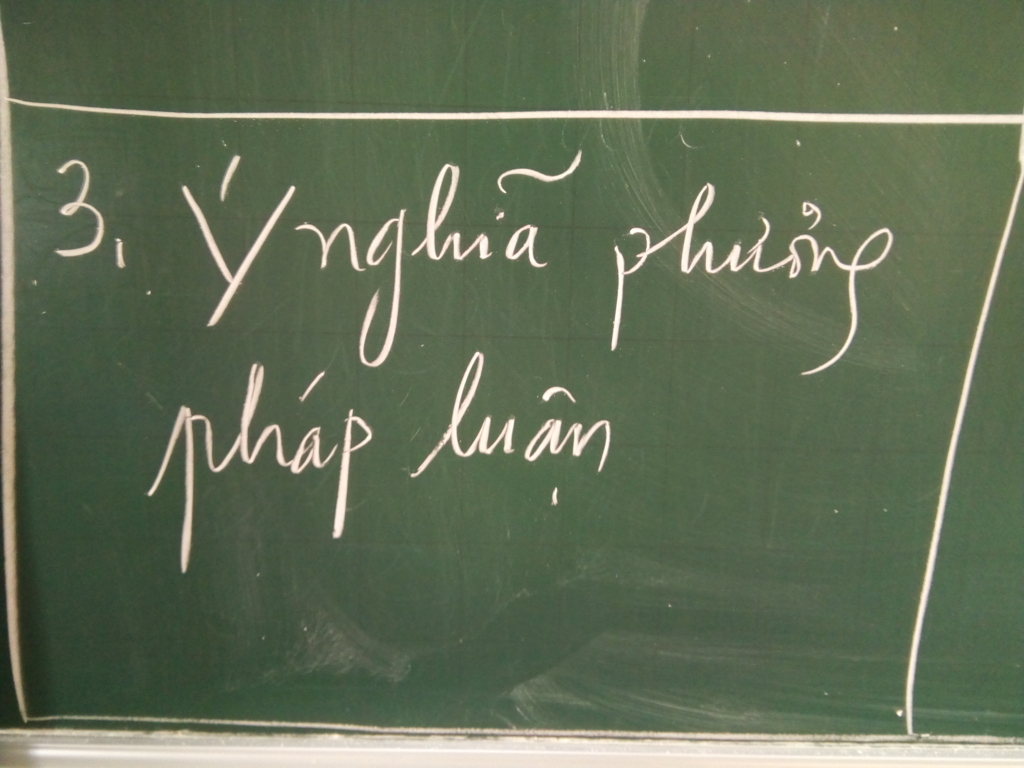 3. Ý nghĩa phương
pháp luận